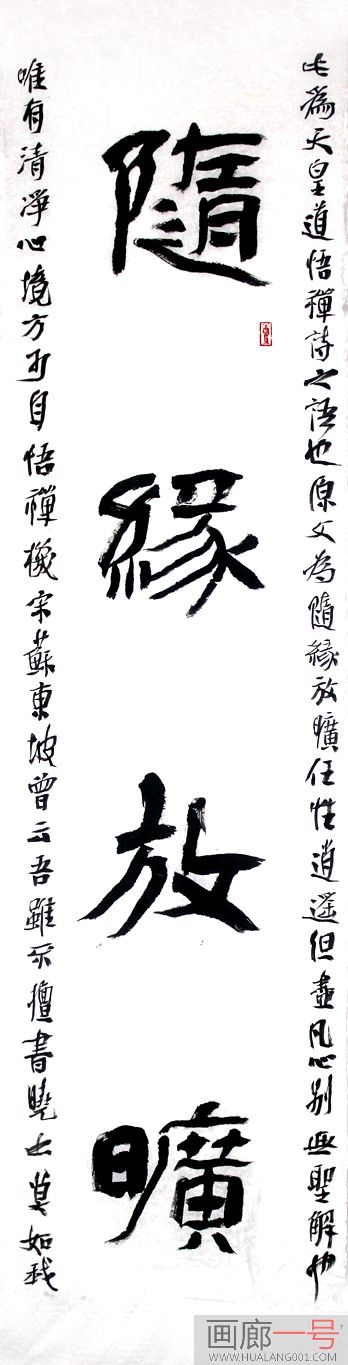 隨緣放曠
此為天皇道悟禪詩之語也原文為隨緣放曠任性逍遥但盡凡心别無聖解也
唯有清淨心境方可自悟禪機宋蘇東坡曾云吾雖不擅書曉書莫如我
画廊一号
WWW.HUALANG001.COM